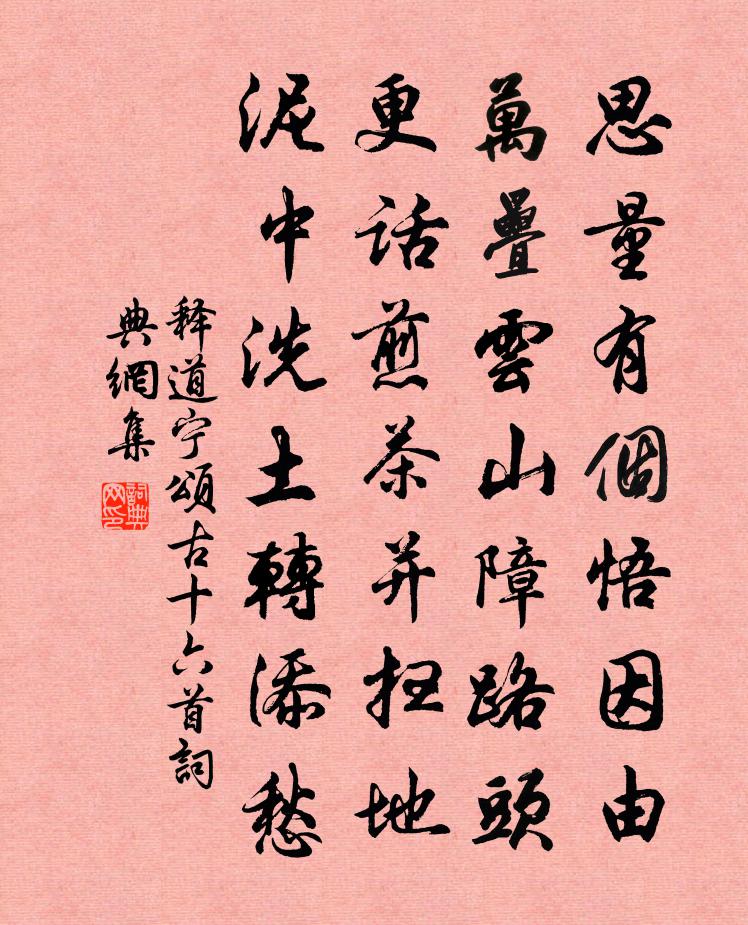 思量有個悟因由
萬疊雲山障路頭
更話煎茶并扫地
泥中洗土轉添愁
释道宁頌古十六首詞
典網集
詞典
网印